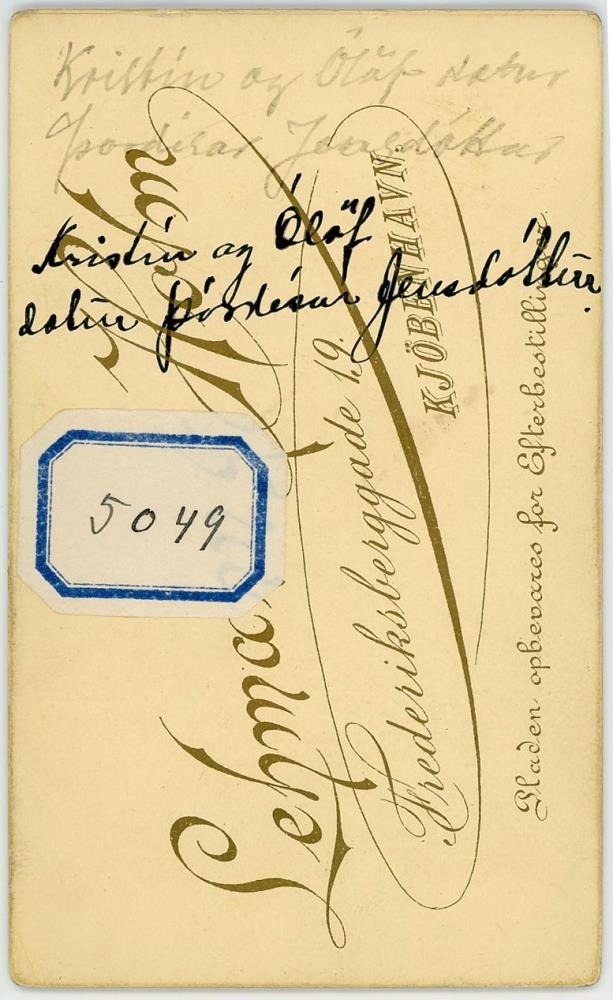 Kristín og Ólöf dætur
Þordisar Jensdóttur
Kristín og Ólöf
dætur Þórdísar Jensdóttur.
5049
Frederiksberggade 19.
KJÖBENHAVN.
Pladen opbevares for Efterbestilling.